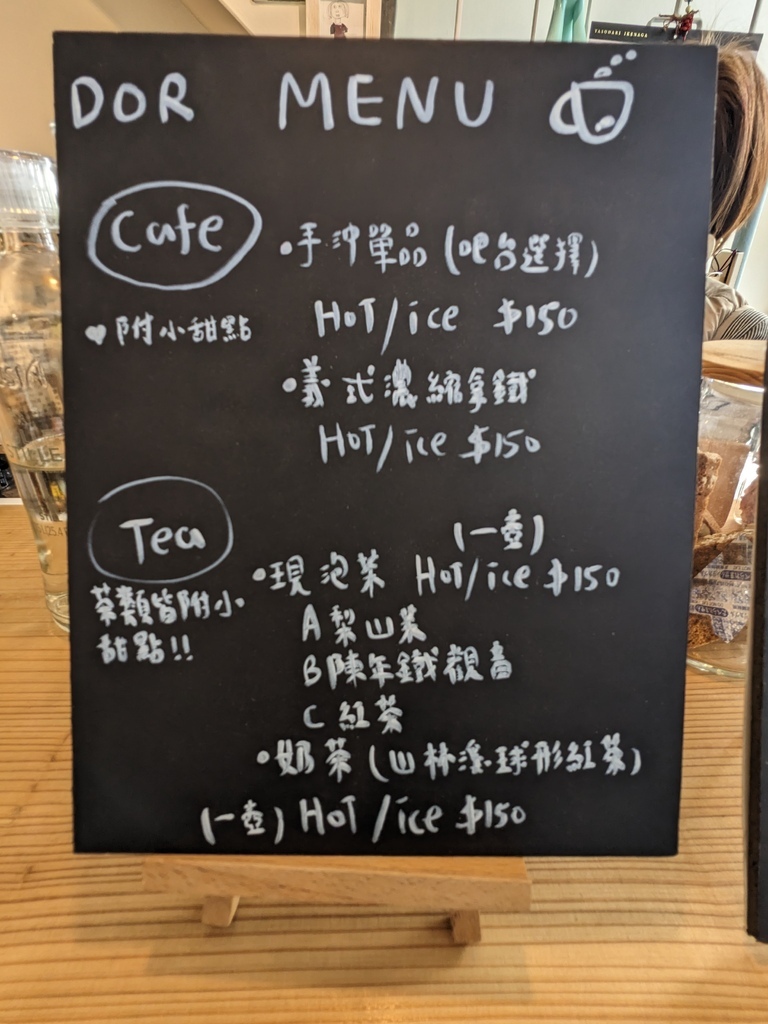 DOR MENU
Cafe
♥附小甜點
•手沖單品(吧台選擇)
HOT/ice $150
•義式濃縮拿鐵
HOT/ice $150
Tea
茶類皆附小
甜點!!
(一壺)
•現泡茶 HOT/ice $150
A 梨山茶
B 陳年鐵觀音
C 紅茶
•奶茶(山林溪·球形紅茶)
(一壺) HOT/ice $150
YASUNARI IKENAGA